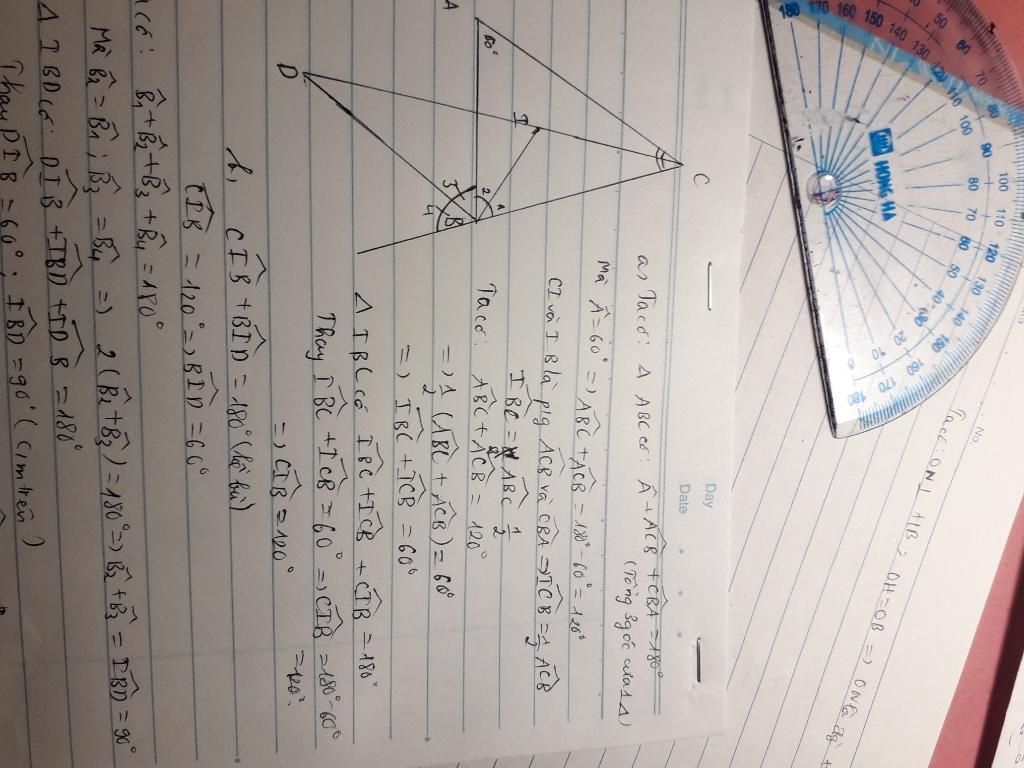 Day
Date
No.
a) Ta có: Δ ABC có: Â + ACB̂ + CBÂ = 180°
(Tổng 3 góc của Δ)
Mà Â = 60° => ABĈ + ACB̂ = 180° - 60° = 120°
CI và IB là p/g ACB̂ và CBÂ => ICB̂ = 1/2 ACB̂
IBĈ = ABĈ 1/2
Ta có: ABĈ + ACB̂ = 120°
=> 1/2 (ABĈ + ACB̂) = 60°
=> IBĈ + ICB̂ = 60°
Δ IBC có IBĈ + ICB̂ + CIB̂ = 180°
Thay IBĈ + ICB̂ = 60° => CIB̂ = 180° - 60°
= 120°
=> CIB̂ = 120°
b, CIB̂ + BID̂ = 180° (kề bù)
CIB̂ = 120° => BID̂ = 60°
có: B̂1 + B̂2 + B̂3 + B̂4 = 180°
Mà B̂2 = B̂1 ; B̂3 = B̂4 => 2(B̂2 + B̂3) = 180° => B̂2 + B̂3 = IBD̂ = 90°
Δ IBD có: DIB̂ + IBD̂ + IDB̂ = 180°
Thay DIB̂ = 60° ; IBD̂ = 90° (cm trên)
A
60°
C
I
D
B
1
2
3
4
Ta có: ON ⊥ HB ; OH = OB =>
HONG HA